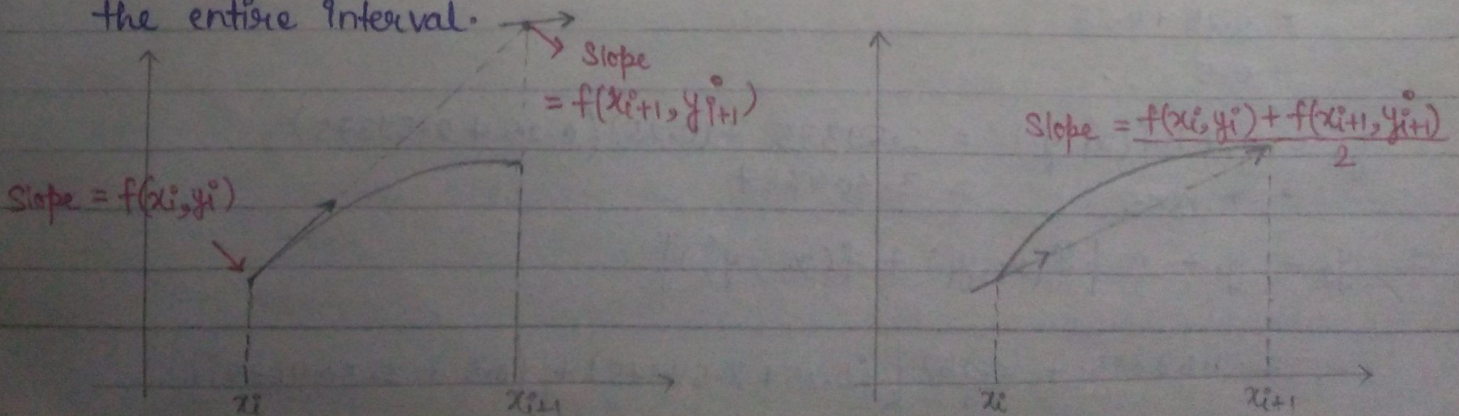 the entire interval.
Slope
= f(xᵢ₊₁, y⁰ᵢ₊₁)
Slope = f(xᵢ, yᵢ)
xᵢ
xᵢ₊₁
Slope = f(xᵢ, yᵢ) + f(xᵢ₊₁, y⁰ᵢ₊₁)
2
xᵢ
xᵢ₊₁